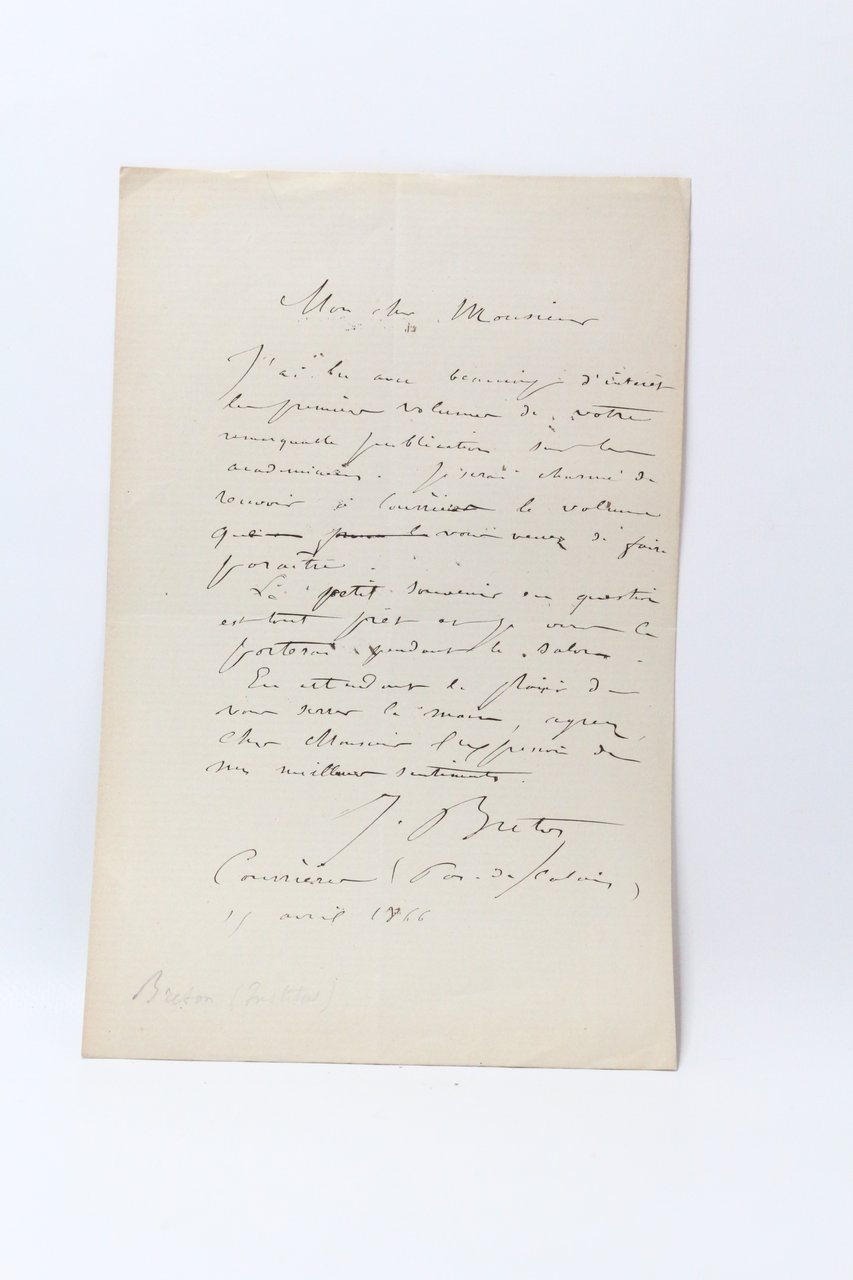 Mon cher Monsieur
J'ai lu avec beaucoup d'intérêt
les premiers volumes de votre
remarquable publication sur les
académiciens. Je serai charmé de
recevoir à Courrières le volume
que vous venez de faire
paraître.
Le petit souvenir en question
est tout prêt et je vous le
porterai pendant le salon.
En attendant le plaisir de
vous serrer la main, agréez,
cher Monsieur l'expression de
mes meilleurs sentiments.
J. Breton
Courrières (Pas-de-Calais)
avril 1866
Breton (Institut)